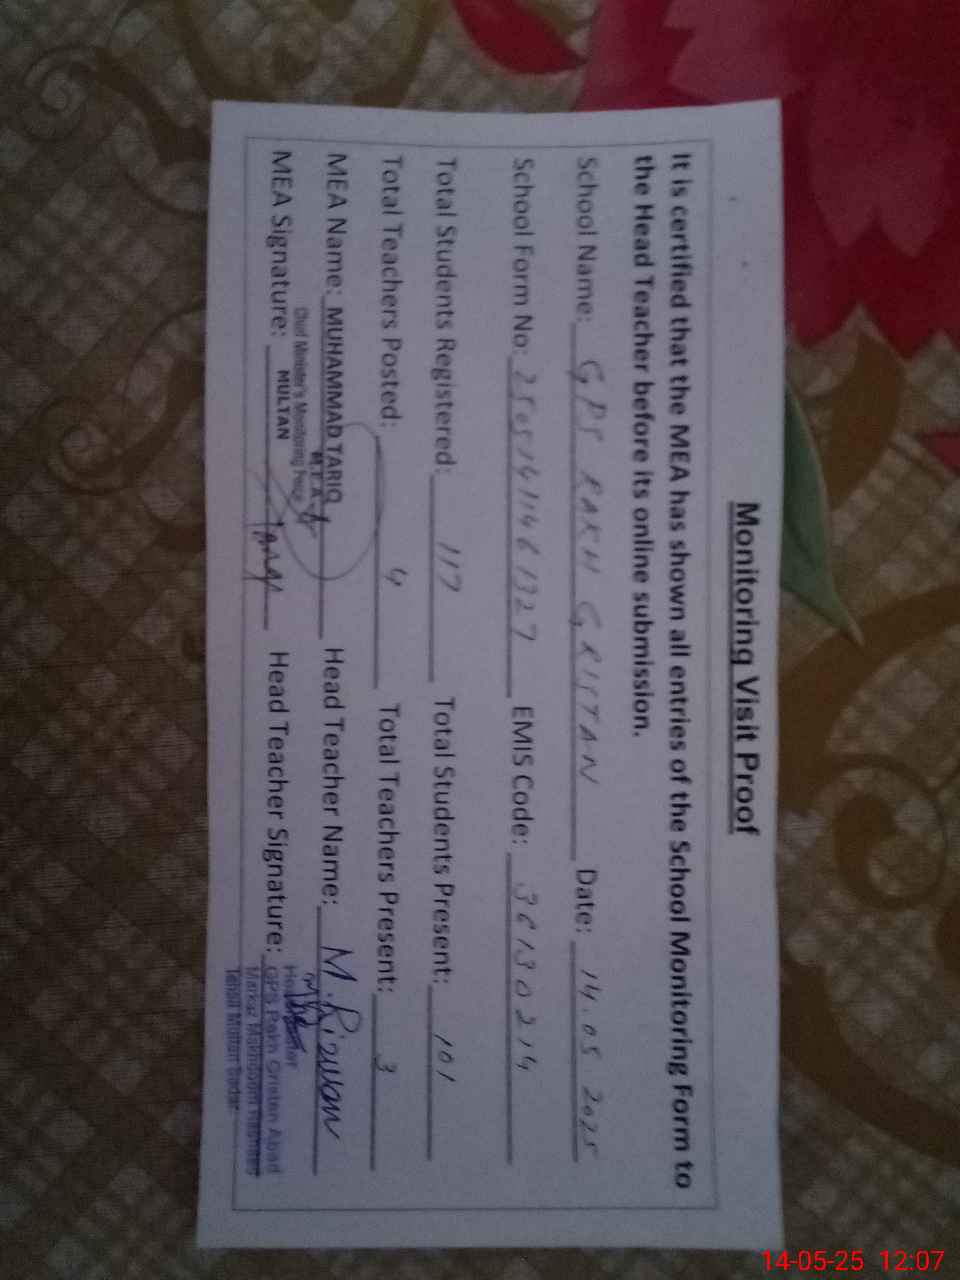 Monitoring Visit Proof
It is certified that the MEA has shown all entries of the School Monitoring Form to
the Head Teacher before its online submission.
School Name: GPS RAKH GRISTAN Date: 14.05 2025
School Form No: 25051411461327 EMIS Code: 36130214
Total Students Registered: 117 Total Students Present: 101
Total Teachers Posted: 4 Total Teachers Present: 3
MEA Name: MUHAMMAD TARIQ Head Teacher Name: M. Rizwan
M.E.A
Chief Minister's Monitoring Force
MULTAN
MEA Signature: Tariq Head Teacher Signature:
Head Master
GPS Rakh Gristan Abad
Markaz Makhdoom Rasheed
Tehsil Multan Sadar
14-05-25 12:07